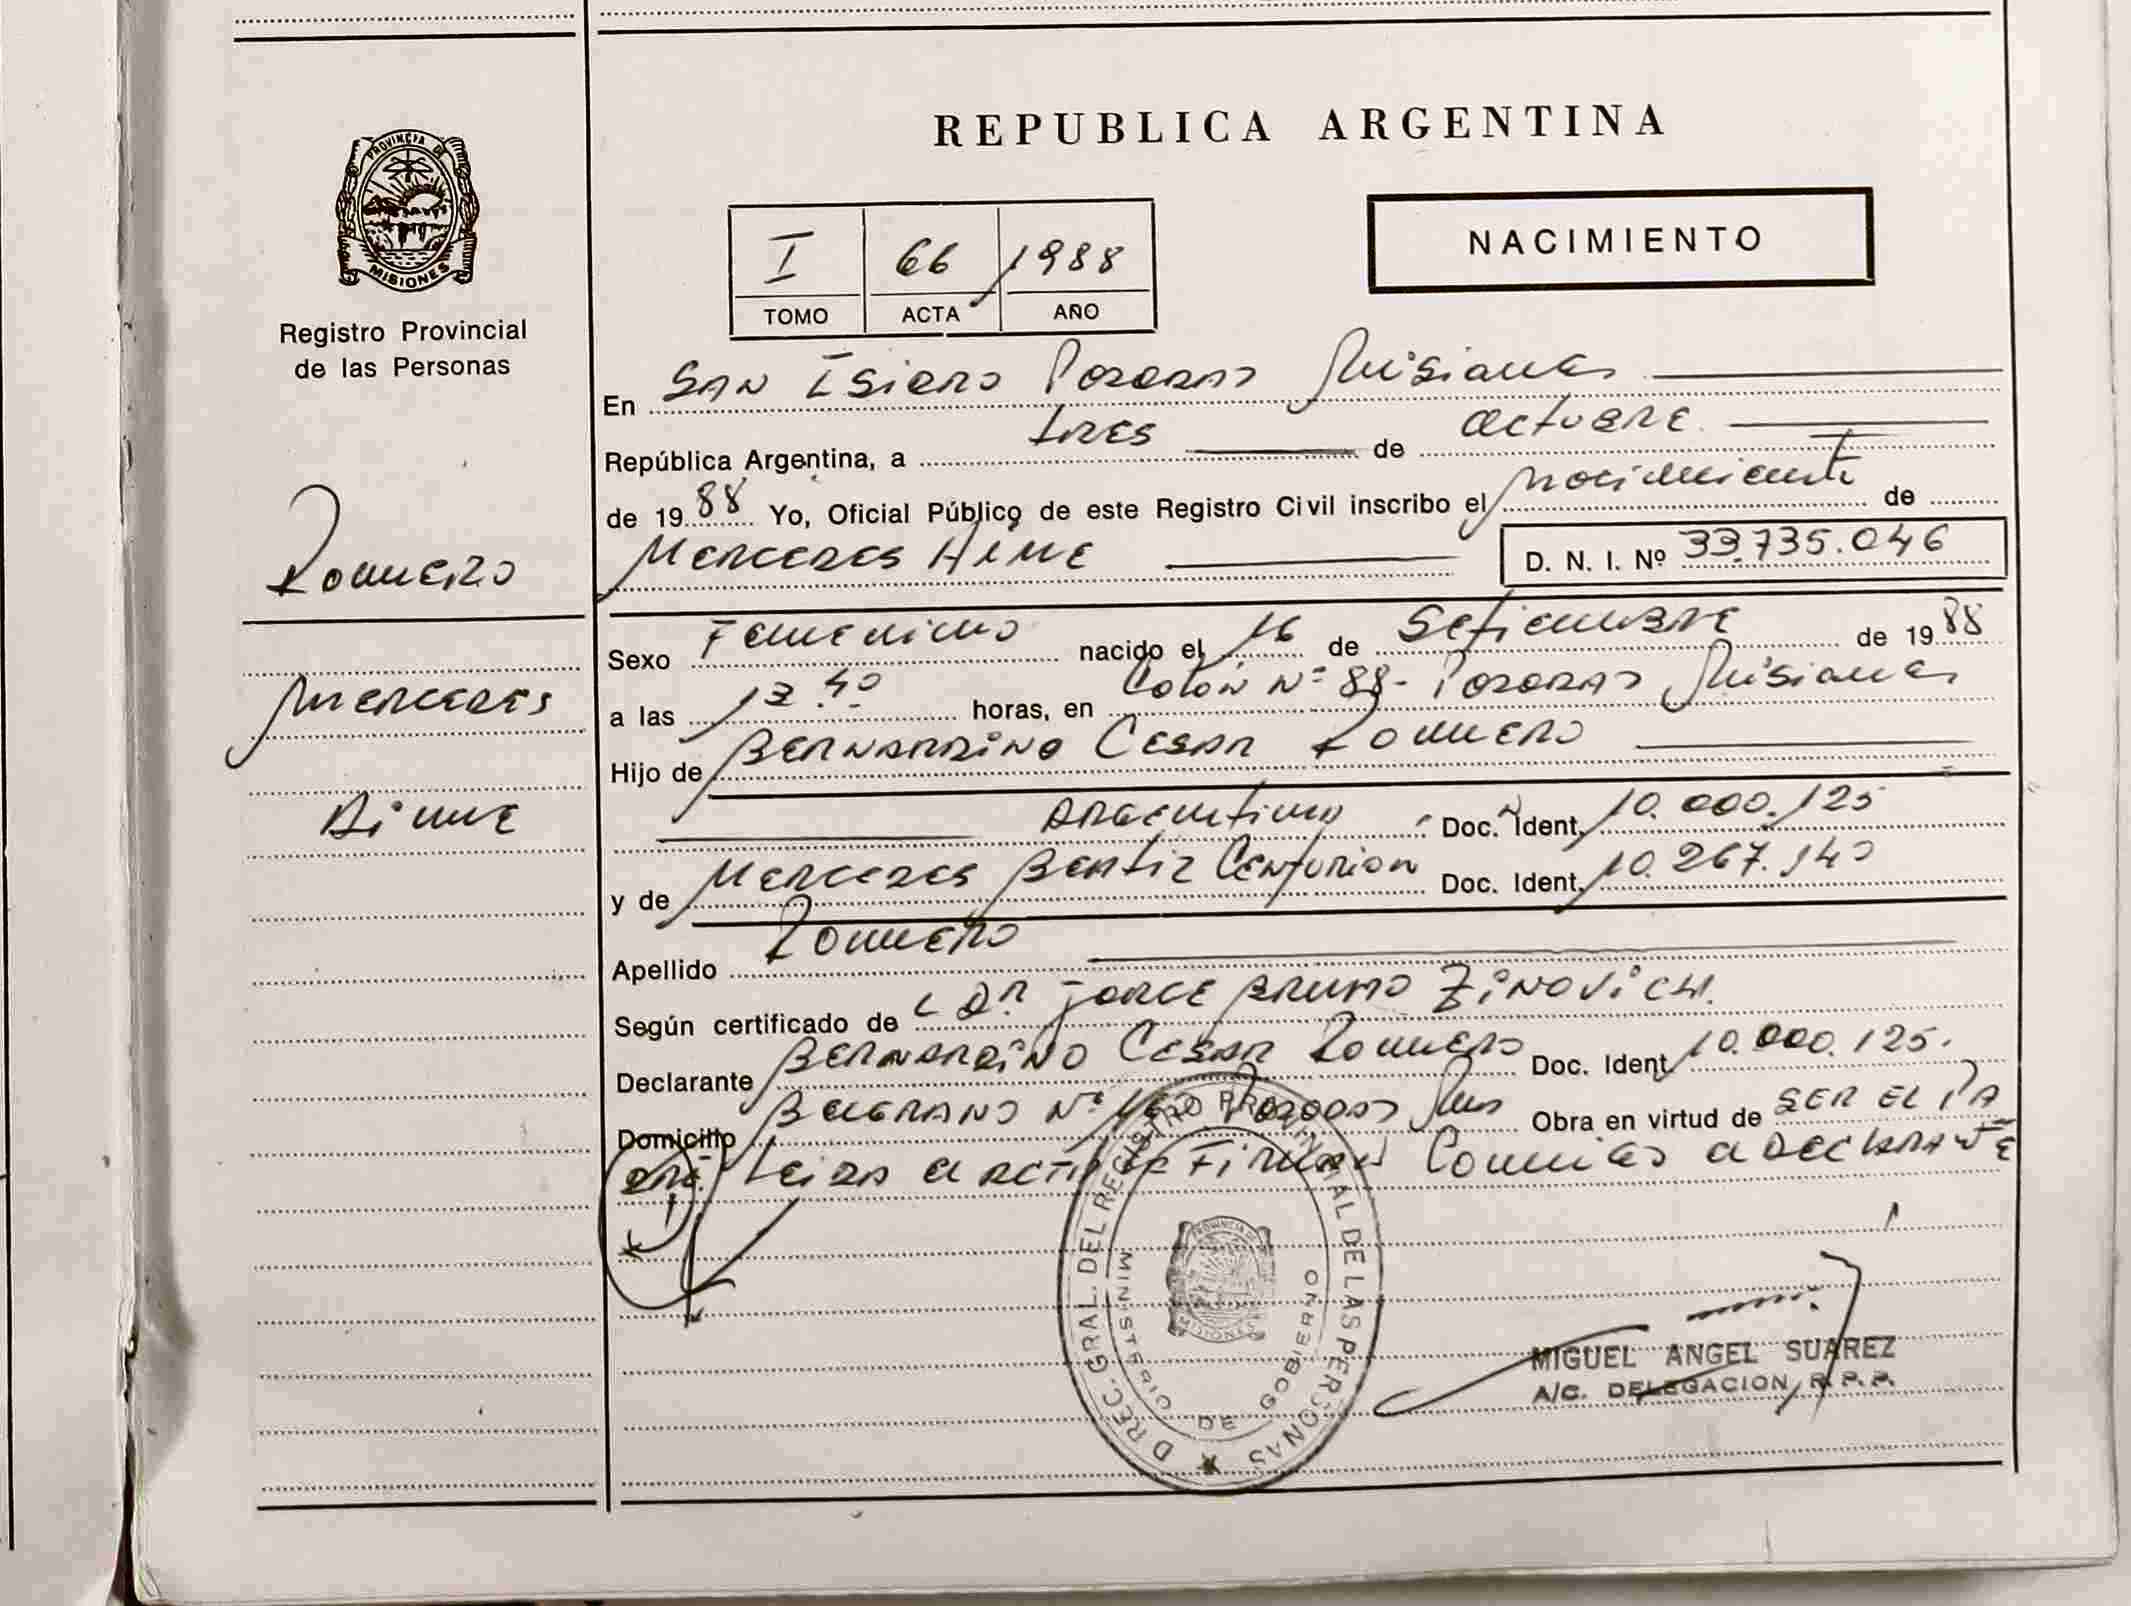 PROVINCIA DE
MISIONES
Registro Provincial
de las Personas
Romero
Mercedes
Aimé
REPUBLICA ARGENTINA
I 66 1988
TOMO ACTA AÑO
NACIMIENTO
En San Isidro Posadas Misiones
República Argentina, a tres de octubre
de 1988 Yo, Oficial Público de este Registro Civil inscribo el nacimiento de
Mercedes Aimé D. N. I. Nº 33.735.046
Sexo Femenino nacido el 16 de Setiembre de 1988
a las 13.40 horas, en Colón Nº 88- Posadas Misiones
Hijo de Bernardino Cesar Romero
Argentino Doc. Ident. 10.000.125
y de Mercedes Beatriz Centurion Doc. Ident. 10.267.140
Apellido Romero
Según certificado de Dr Jorge Bruno Zinovich.
Declarante Bernardino Cesar Romero Doc. Ident 10.000.125.
Domicilio Belgrano Nº Posadas Mis Obra en virtud de ser el pa
dre. Leida el acta la firman Conmigo el declarante
DIREC. GRAL. DEL REGISTRO PROVINCIAL DE LAS PERSONAS
MINISTERIO DE GOBIERNO
PROVINCIA
MISIONES
MIGUEL ANGEL SUAREZ
A/C. DELEGACION R. P. P.